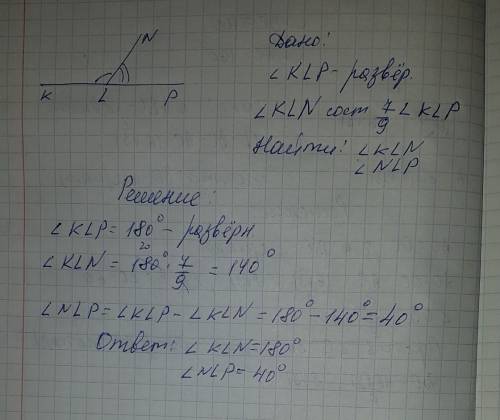 N
K L P
Дано:
∠KLP - развёр.
∠KLN сост 7/9 ∠KLP
Найти: ∠KLN
∠NLP
Решение:
∠KLP = 180° - развёрн.
20
∠KLN = 180° · 7/9 = 140°
∠NLP = ∠KLP - ∠KLN = 180° - 140° = 40°
Ответ: ∠KLN = 180°
∠NLP = 40°